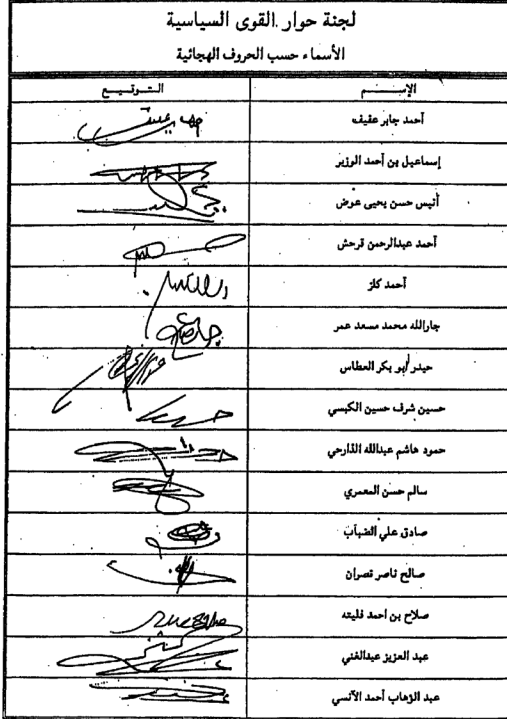 لجنة حوار القوى السياسية
الأسماء حسب الحروف الهجائية
الإســـم التـوقيـــع
أحمد جابر عفيف
إسماعيل بن أحمد الوزير
أنيس حسن يحيى عوض
أحمد عبدالرحمن قرحش
أحمد كلز
جارالله محمد مسعد عمر
حيدر أبو بكر العطاس
حسين شرف حسين الكبسي
حمود هاشم عبدالله الذارحي
سالم حسن المعمري
صادق علي الضباب
صالح ناصر نصران
صلاح بن احمد فليته
عبد العزيز عبدالغني
عبد الوهاب أحمد الآنسي